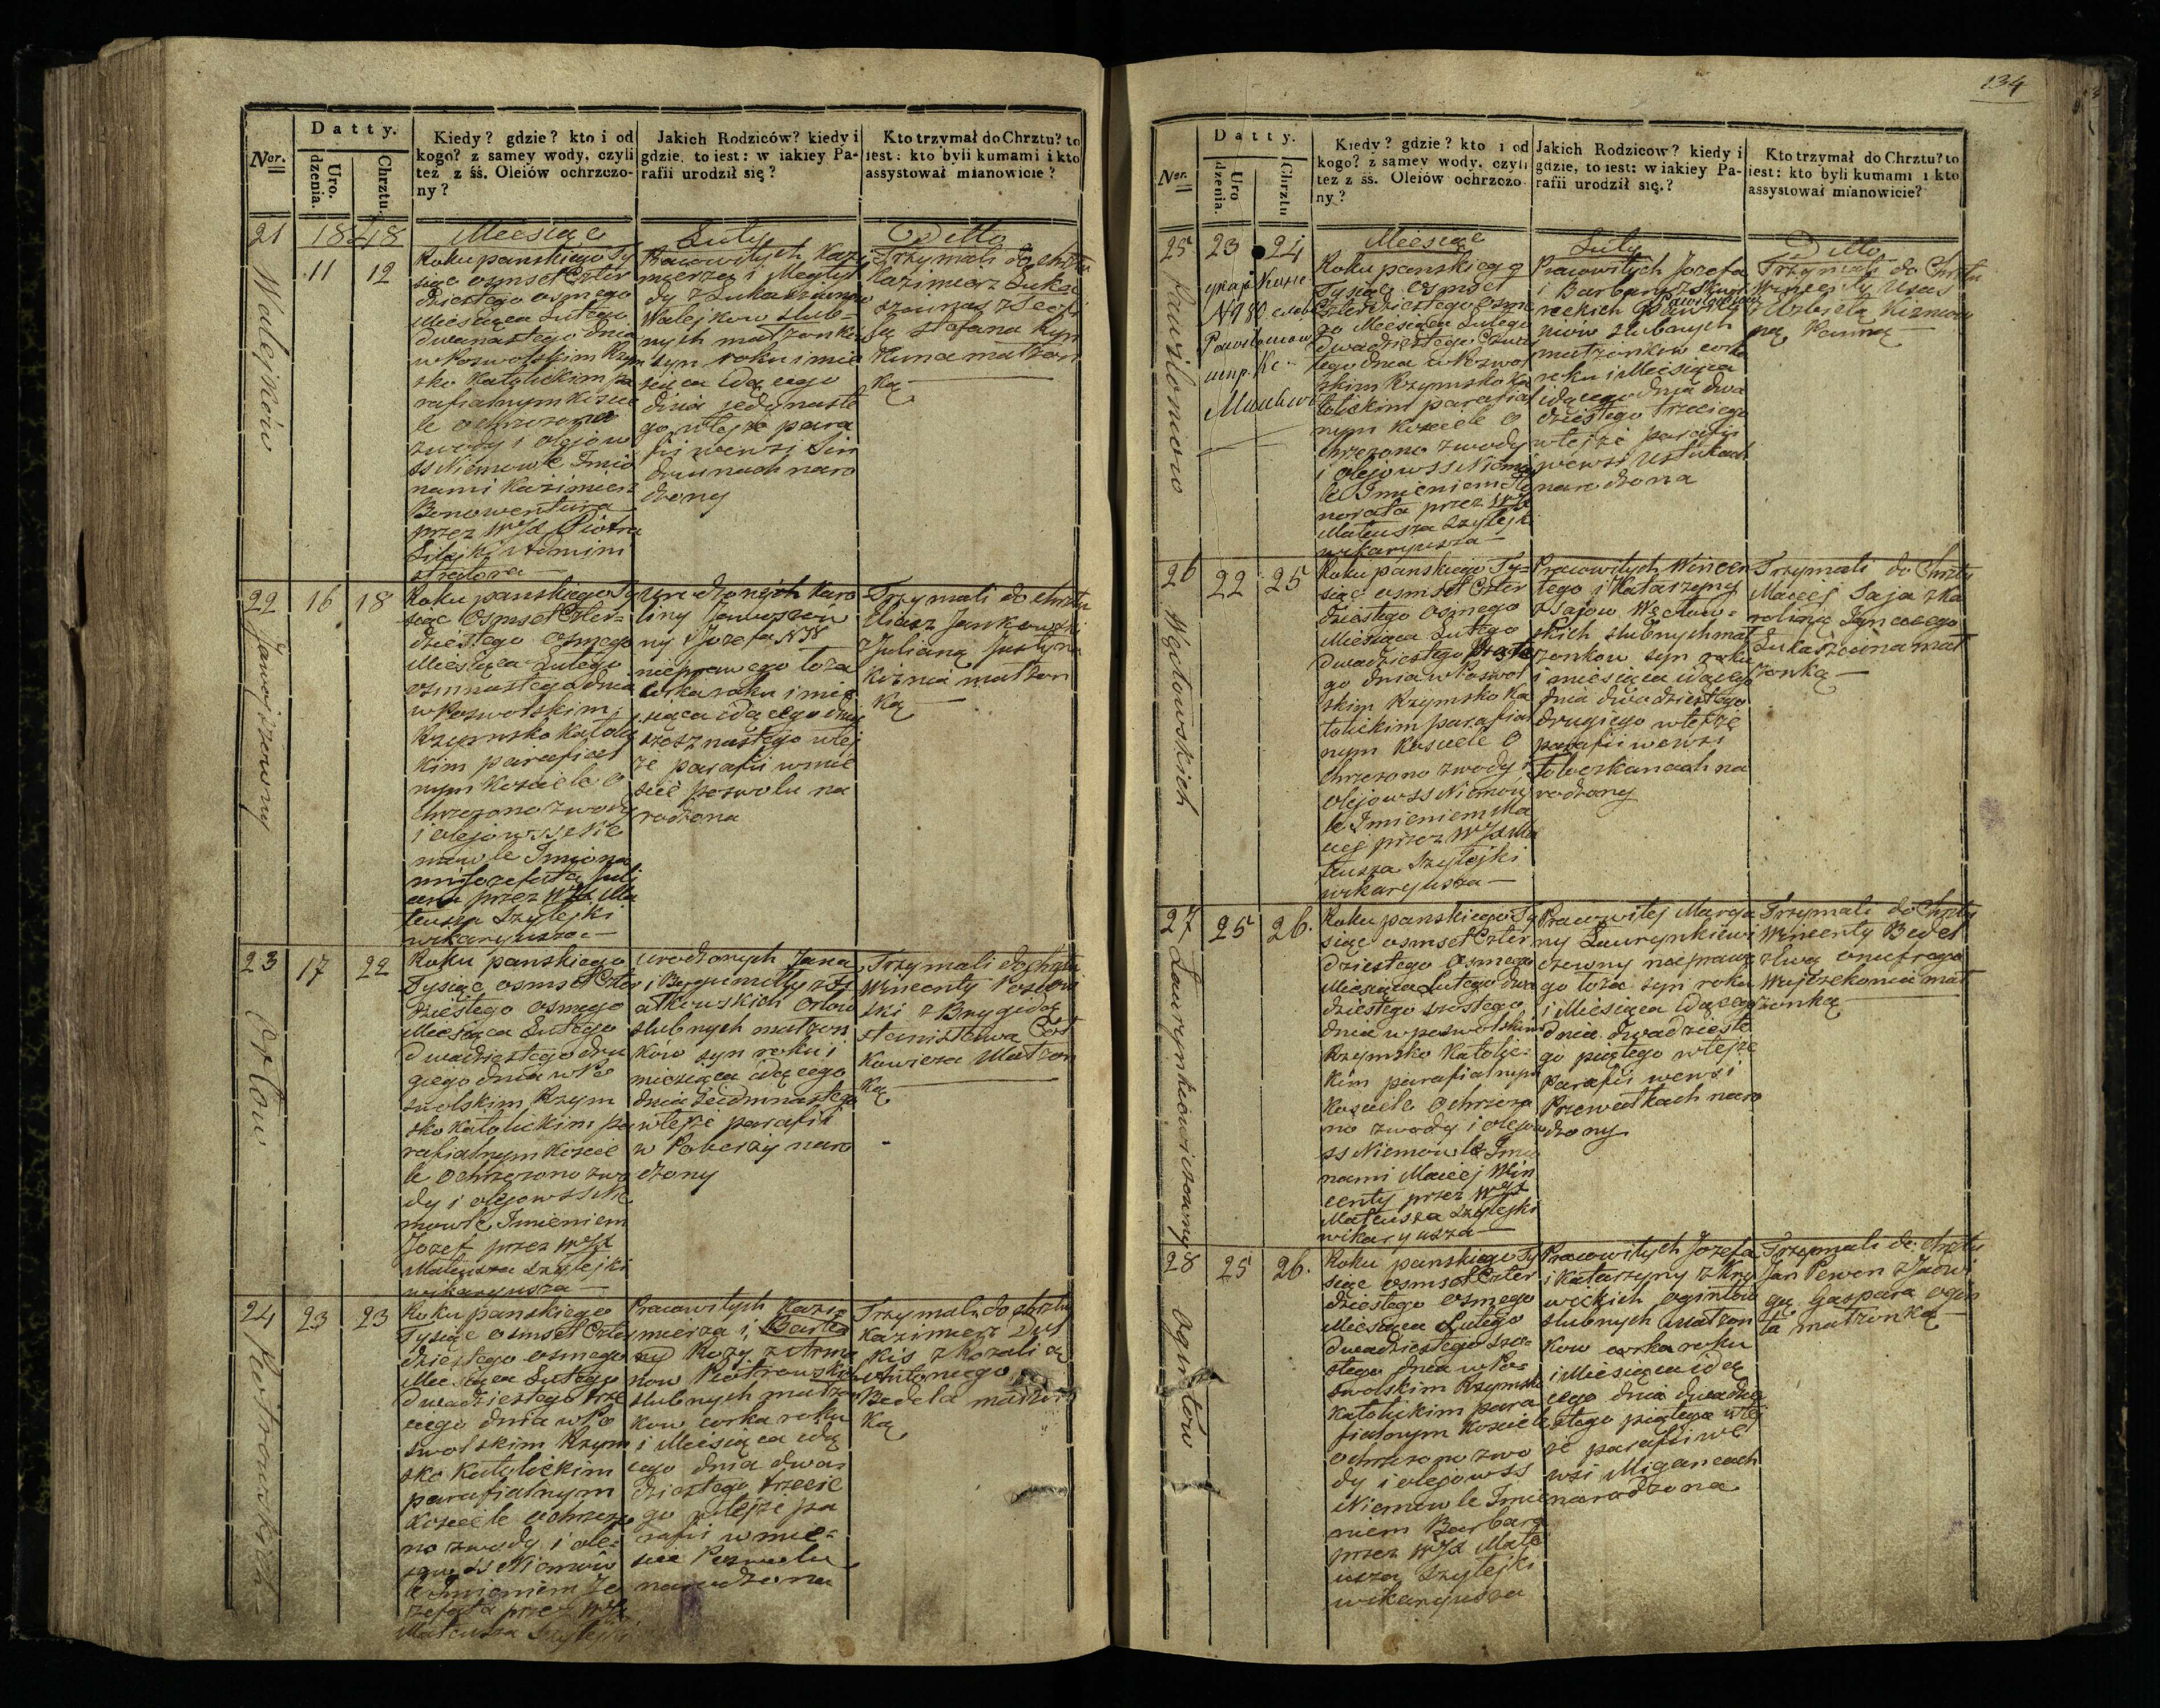 134
Datty.
Ner.
Uro.
dzenia.
Chrztu.
Kiedy? gdzie? kto i od
kogo? z samey wody, czyli
też z śś. Oleiów ochrzczo-
ny?
Jakich Rodziców? kiedy i
gdzie, to iest: w iakiey Pa-
rafii urodził się?
Kto trzymał do Chrztu? to
iest: kto byli kumami i kto
assystował mianowicie?
21
1848
11
12
Walejków
Miesiąc
Roku panskiego Ty
siąc osmset Czter
dziestego osmego
Miesiąca Lutego
dwunastego dnia
w Poswolskim Rzym
sko Katolickim pa
rafialnym Koscie
le ochrzczono
z wody i olejow
ss Niemowle Imio
nami Kazimierz
Bonawentura
przez WJX Piotra
Admini
stratora
Luty
Pracowitych Kazi
mierza i Magdy
z Łukaszunow
Walejkow slub-
nych małżonkow
syn roku i mie
siąca idącego
dnia jedynaste
go w tejże para
fii we wsi
narodzony
Ditto
Trzymali do chrztu
Kazimierz
Stefana
małżon
ką
22
16
18
Roku panskiego Ty
siąc osmset Czter-
dziestego osmego
Miesiąca Lutego
osmnastego dnia
w Poswolskim
Rzymsko Katolic
kim parafial
nym Kosciele O
chrzczono z wody
i olejow ss Nie
mowle Imiona
mi Jozefata Juli
anna przez WJX Ma
teusza Szylejki
wikaryusza
Urodzonych Karo
liny
ny Jozefa NN
nieprawego łoża
corka roku i mie
siąca idącego dnia
szesznastego w tej
że parafii w mie
scie Poswolu na
rodzona
Trzymali do chrztu
Eliasz Jankowski
z Julianą Justyna
małżon
ką
23
17
22
Orłow
Roku panskiego
Tysiąc osmset Czter
dziestego osmego
Miesiąca Lutego
dwudziestego dru
giego dnia w Po
swolskim Rzym
sko Katolickim pa
rafialnym Koscie
le ochrzczono z wo
dy i olejow ss Nie
mowle Imieniem
Jozef przez WJX
Mateusza Szylejki
wikaryusza
Urodzonych Jana
i Bogumiły z
Orłow
slubnych małżon
kow syn roku i
miesiąca idącego
dnia siedmnastego
w tejże parafii
w naro
dzony
Trzymali do chrztu
Wincenty
ski z Brygidą
Stanisława
Małżon
ką
24
23
23
Piotrowskich
Roku panskiego
Tysiąc osmset Czter
dziestego osmego
Miesiąca Lutego
dwudziestego trze
ciego dnia w Po
swolskim Rzym
sko Katolickim
parafialnym
Kosciele ochrzczo
no z wody i ole-
jow ss Niemow
le Imieniem Jo
zefata przez WJX
Mateusza Szylejki
Pracowitych Kazi
mierza i
Rozy
now Piotrowskich
slubnych małżon
kow corka roku
i Miesiąca idą
cego dnia dwu-
dziestego trzecie
go w tejże pa
rafii w mie-
scie Poswolu
narodzona
Trzymali do chrztu
Kazimierz
kis z Rozalią
Antoniego
Bedela małżon
ką
Datty.
Ner.
Uro
dzenia.
Chrztu
Kiedy? gdzie? kto i od
kogo? z samey wody, czyli
tez z śś. Oleiów ochrzczo
ny?
Jakich Rodziców? kiedy i
gdzie, to iest: w iakiey Pa-
rafii urodził się.?
Kto trzymał do Chrztu? to
iest: kto byli kumami i kto
assystował mianowicie?
25
23
24
Miesiąc
Roku panskiego
Tysiąc osmset
Czterdziestego osme
go Miesiąca Lutego
dwudziestego czwar
tego dnia w Poswol
skim Rzymsko Ka
tolickim parafial
nym Kosciele O
chrzczono z wody
i olejow ss Niemow
le Imieniem Ho
norata przez WJX
Mateusza Szylejki
wikaryusza
Luty
Pracowitych Jozefa
i Barbary
reckich
slubnych
małżonkow corka
roku i Miesiąca
idącego dnia dwu
dziestego trzeciego
w tejże parafii
we wsi
narodzona
Ditto
Trzymali do Chrztu
Wincenty
z Elżbieta
ną Panną
26
22
25
Węcłowskich
Roku panskiego Ty-
siąc osmset Czter
dziestego osmego
Miesiąca Lutego
dwudziestego piąte
go dnia w Poswol
skim Rzymsko Ka
tolickim parafial
nym Kosciele O
chrzczono z wody i
olejow ss Niemow
le Imieniem Ma
ciej przez WJX Ma
teusza Szylejki
wikaryusza
Pracowitych Wincen
tego i Katarzyny
z Sajow Węcław-
skich slubnych mał
żonkow syn roku
i miesiąca idącego
dnia dwudziestego
drugiego w tejże
parafii we wsi
na
rodzony
Trzymali do Chrztu
Maciej Saja z Ka
roliną Ignacego
Łukaszuna mał
żonką
27
25
26.
Laurynkiewiczowny
Roku panskiego Ty
siąc osmset Czter
dziestego osmego
Miesiąca Lutego dwu
dziestego szostego
dnia w poswolskim
Rzymsko Katolic-
kim parafialnym
Kosciele Ochrzczo
no z wody i olejow
ss Niemowle Imio
nami Maciej Win
centy przez WJX
Mateusza Szylejki
wikaryusza
Pracowitej Marya
ny Laurynkiewi
czowny nieprawe
go łoża syn roku
i Miesiąca idącego
dnia dwudzieste
go piątego w tejże
parafii we wsi
naro
dzony
Trzymali do Chrztu
Wincenty Bedel
z Ewą Onufrego
mał
żonką
28
25
26.
Ogintow
Roku panskiego Ty
siąc osmset Czter
dziestego osmego
Miesiąca Lutego
dwudziestego szo-
stego dnia w Po-
swolskim Rzymsko
Katolickim para
fialnym Kosciele
ochrzczono z wo
dy i olejow ss
Niemowle Imie
niem Barbara
przez WJX Mate
usza Szylejki
wikaryusza
Pracowitych Jozefa
i Katarzyny z
wickich Ogintow
slubnych małżon
kow corka roku
i Miesiąca idą
cego dnia dwudzie
stego piątego w tej
że parafii we
wsi Migancach
narodzona
Trzymali do Chrztu
Jan z Jadwi
gą Gaspara Ogin
ta małżonką